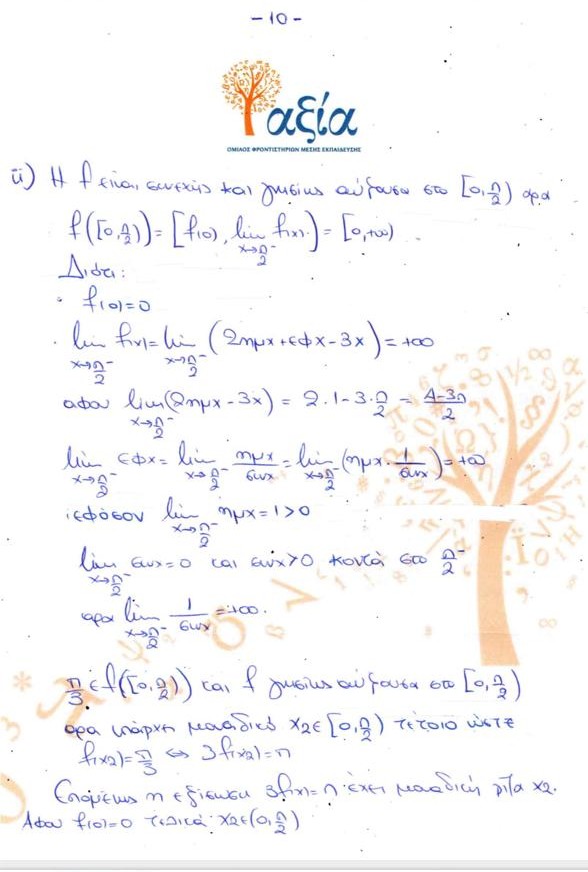 - 10 -
αξία
ΟΜΙΛΟΣ ΦΡΟΝΤΙΣΤΗΡΙΩΝ ΜΕΣΗΣ ΕΚΠΑΙΔΕΥΣΗΣ
ii) Η f είναι συνεχής και γνησίως αύξουσα στο [0, π/2) άρα
f([0, π/2)) = [f(0), lim x→π/2⁻ f(x)) = [0, +∞)
Διότι:
· f(0)=0
· lim x→π/2⁻ f(x) = lim x→π/2⁻ (2ημx + εφx - 3x) = +∞
αφού lim x→π/2⁻ (2ημx - 3x) = 2·1 - 3·π/2 = (4-3π)/2
lim x→π/2⁻ εφx = lim x→π/2⁻ ημx/συνx = lim x→π/2⁻ (ημx · 1/συνx) = +∞
εφόσον lim x→π/2⁻ ημx = 1 > 0
lim x→π/2⁻ συνx = 0 και συνx > 0 κοντά στο π/2⁻
άρα lim x→π/2⁻ 1/συνx = +∞.
π/3 ∈ f([0, π/2)) και f γνησίως αύξουσα στο [0, π/2)
άρα υπάρχει μοναδικό x₂ ∈ [0, π/2) τέτοιο ώστε
f(x₂) = π/3 ⇔ 3f(x₂) = π
Επομένως η εξίσωση 3f(x) = π έχει μοναδική ρίζα x₂.
Αφού f(0)=0 τελικά x₂ ∈ (0, π/2)